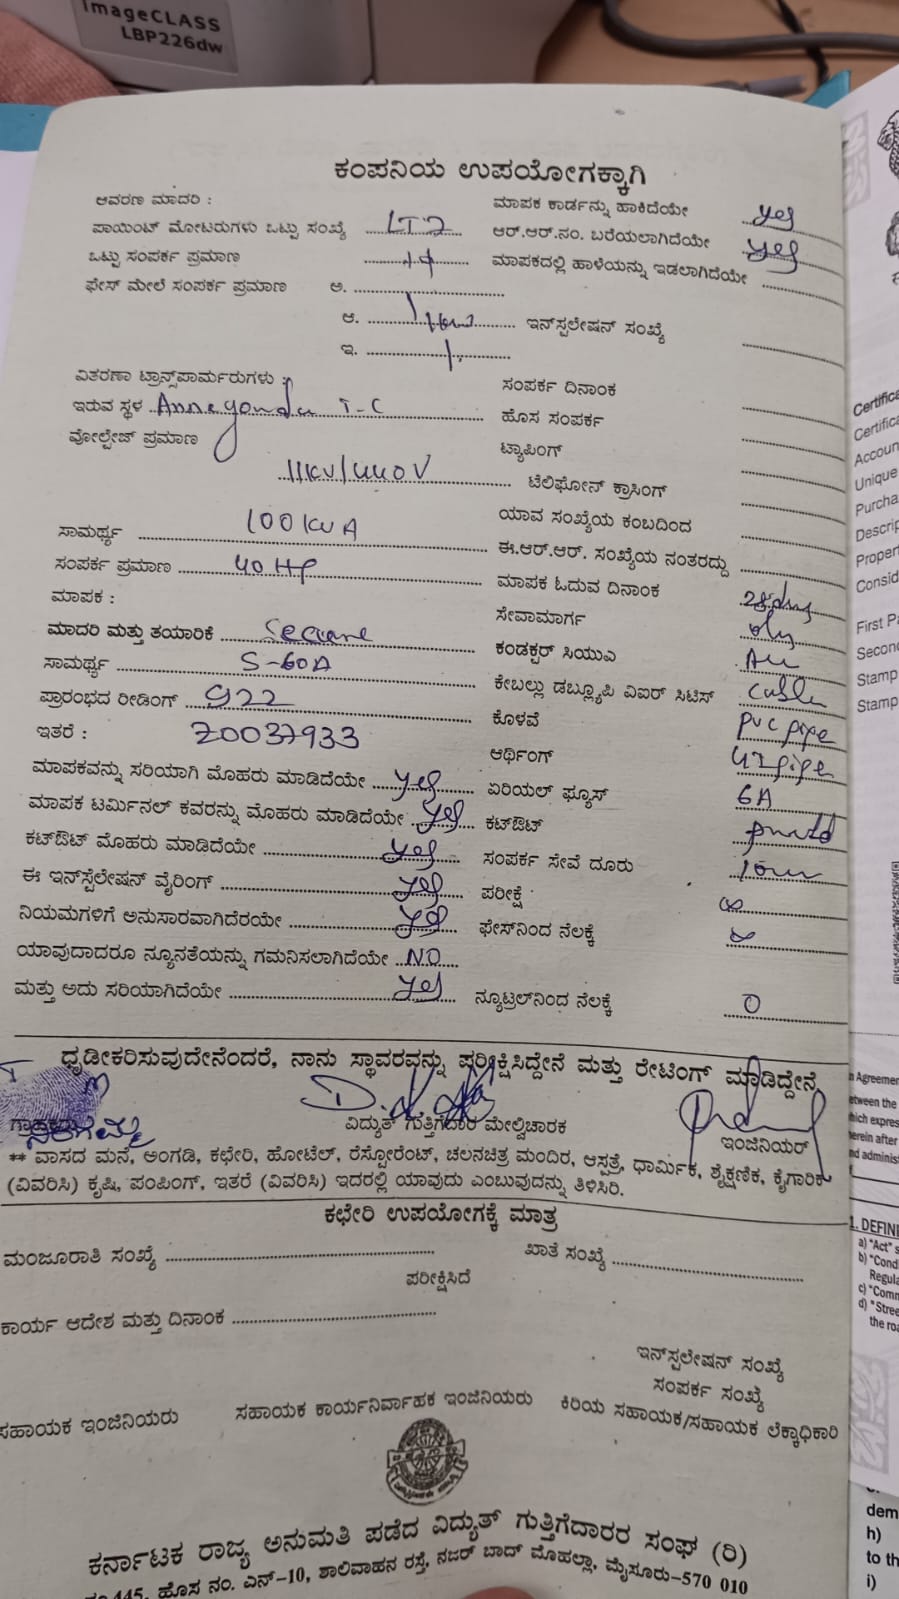 imageCLASS
LBP226dw
ಕಂಪನಿಯ ಉಪಯೋಗಕ್ಕಾಗಿ
ಆವರಣ ಮಾದರಿ :
ಮಾಪಕ ಕಾರ್ಡನ್ನು ಹಾಕಿದೆಯೇ yes
ಪಾಯಿಂಟ್ ಮೋಟರುಗಳು ಒಟ್ಟು ಸಂಖ್ಯೆ LT2
ಆರ್.ಆರ್.ನಂ. ಬರೆಯಲಾಗಿದೆಯೇ yes
ಒಟ್ಟು ಸಂಪರ್ಕ ಪ್ರಮಾಣ
ಮಾಪಕದಲ್ಲಿ ಹಾಳೆಯನ್ನು ಇಡಲಾಗಿದೆಯೇ
ಫೇಸ್ ಮೇಲೆ ಸಂಪರ್ಕ ಪ್ರಮಾಣ ಅ.
ಆ. ಇನ್‌ಸ್ಟಲೇಷನ್ ಸಂಖ್ಯೆ
ಇ.
ವಿತರಣಾ ಟ್ರಾನ್ಸ್‌ಪಾರ್ಮರುಗಳು :
ಸಂಪರ್ಕ ದಿನಾಂಕ
ಇರುವ ಸ್ಥಳ T-C
ಹೊಸ ಸಂಪರ್ಕ
ವೋಲ್ಟೇಜ್ ಪ್ರಮಾಣ
ಟ್ಯಾಪಿಂಗ್
11KV/440V
ಟೆಲಿಫೋನ್ ಕ್ರಾಸಿಂಗ್
ಸಾಮರ್ಥ್ಯ 100 KVA
ಯಾವ ಸಂಖ್ಯೆಯ ಕಂಬದಿಂದ
ಸಂಪರ್ಕ ಪ್ರಮಾಣ 40 HP
ಈ.ಆರ್.ಆರ್. ಸಂಖ್ಯೆಯ ನಂತರದ್ದು
ಮಾಪಕ :
ಮಾಪಕ ಓದುವ ದಿನಾಂಕ
ಮಾದರಿ ಮತ್ತು ತಯಾರಿಕೆ
ಸೇವಾಮಾರ್ಗ
ಸಾಮರ್ಥ್ಯ 5-60A
ಕಂಡಕ್ಟರ್ ಸಿಯುವಿ
ಪ್ರಾರಂಭದ ರೀಡಿಂಗ್ 922
ಕೇಬಲ್ಲು ಡಬ್ಲ್ಯೂಪಿ ವಿಐರ್ ಸಿಟಿಸ್ cable
ಇತರೆ : Z0037933
ಕೊಳವೆ pvc pipe
ಆರ್ಥಿಂಗ್
ಮಾಪಕವನ್ನು ಸರಿಯಾಗಿ ಮೊಹರು ಮಾಡಿದೆಯೇ yes
ಏರಿಯಲ್ ಫ್ಯೂಸ್ 6A
ಮಾಪಕ ಟರ್ಮಿನಲ್ ಕವರನ್ನು ಮೊಹರು ಮಾಡಿದೆಯೇ yes
ಕಟ್‌ಔಟ್
ಕಟ್‌ಔಟ್ ಮೊಹರು ಮಾಡಿದೆಯೇ yes
ಸಂಪರ್ಕ ಸೇವೆ ದೂರು
ಈ ಇನ್‌ಸ್ಟೆಲೇಷನ್ ವೈರಿಂಗ್ yes
ಪರೀಕ್ಷೆ
ನಿಯಮಗಳಿಗೆ ಅನುಸಾರವಾಗಿದೆರಯೇ yes
ಫೇಸ್‌ನಿಂದ ನೆಲಕ್ಕೆ
ಯಾವುದಾದರೂ ನ್ಯೂನತೆಯನ್ನು ಗಮನಿಸಲಾಗಿದೆಯೇ NO
ಮತ್ತು ಅದು ಸರಿಯಾಗಿದೆಯೇ yes
ನ್ಯೂಟ್ರಲ್‌ನಿಂದ ನೆಲಕ್ಕೆ 0
ಧೃಡೀಕರಿಸುವುದೇನೆಂದರೆ, ನಾನು ಸ್ಥಾವರವನ್ನು ಪರೀಕ್ಷಿಸಿದ್ದೇನೆ ಮತ್ತು ರೇಟಿಂಗ್ ಮಾಡಿದ್ದೇನೆ
ವಿದ್ಯುತ್ ಗುತ್ತಿಗೆದಾರ ಮೇಲ್ವಿಚಾರಕ
ಇಂಜಿನಿಯರ್
** ವಾಸದ ಮನೆ, ಅಂಗಡಿ, ಕಛೇರಿ, ಹೋಟೆಲ್, ರೆಸ್ಟೋರೆಂಟ್, ಚಲನಚಿತ್ರ ಮಂದಿರ, ಆಸ್ಪತ್ರೆ, ಧಾರ್ಮಿಕ, ಶೈಕ್ಷಣಿಕ, ಕೈಗಾರಿಕ
(ವಿವರಿಸಿ) ಕೃಷಿ, ಪಂಪಿಂಗ್, ಇತರೆ (ವಿವರಿಸಿ) ಇದರಲ್ಲಿ ಯಾವುದು ಎಂಬುವುದನ್ನು ತಿಳಿಸಿರಿ.
ಕಛೇರಿ ಉಪಯೋಗಕ್ಕೆ ಮಾತ್ರ
ಮಂಜೂರಾತಿ ಸಂಖ್ಯೆ
ಖಾತೆ ಸಂಖ್ಯೆ
ಪರೀಕ್ಷಿಸಿದೆ
ಕಾರ್ಯ ಆದೇಶ ಮತ್ತು ದಿನಾಂಕ
ಇನ್‌ಸ್ಟಲೇಷನ್ ಸಂಖ್ಯೆ
ಸಂಪರ್ಕ ಸಂಖ್ಯೆ
ಸಹಾಯಕ ಇಂಜಿನಿಯರು
ಸಹಾಯಕ ಕಾರ್ಯನಿರ್ವಾಹಕ ಇಂಜಿನಿಯರು
ಕಿರಿಯ ಸಹಾಯಕ/ಸಹಾಯಕ ಲೆಕ್ಕಾಧಿಕಾರಿ
ಕರ್ನಾಟಕ ರಾಜ್ಯ ಅನುಮತಿ ಪಡೆದ ವಿದ್ಯುತ್ ಗುತ್ತಿಗೆದಾರರ ಸಂಘ (ರಿ)
445, ಹೊಸ ನಂ. ಎನ್-10, ಶಾಲಿವಾಹನ ರಸ್ತೆ, ನಜರ್ ಬಾದ್ ಮೊಹಲ್ಲಾ, ಮೈಸೂರು-570 010
Certifica
Certific
Accoun
Unique
Purcha
Descrip
Proper
Consid
First P
Second
Stamp
Stamp
n Agreemen
etween the
hich expres
erein after
nd adminis
1. DEFINI
a) "Act" s
b) "Cond
Regula
c) "Comm
d) "Stree
the roa
dem
h)
to th
i)